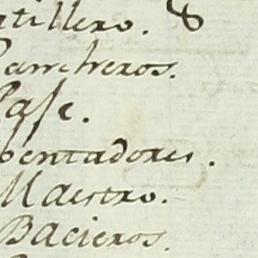 atillero. 8
Parrcheros.
Pase.
bentadores.
Maestro.
Bacieros.